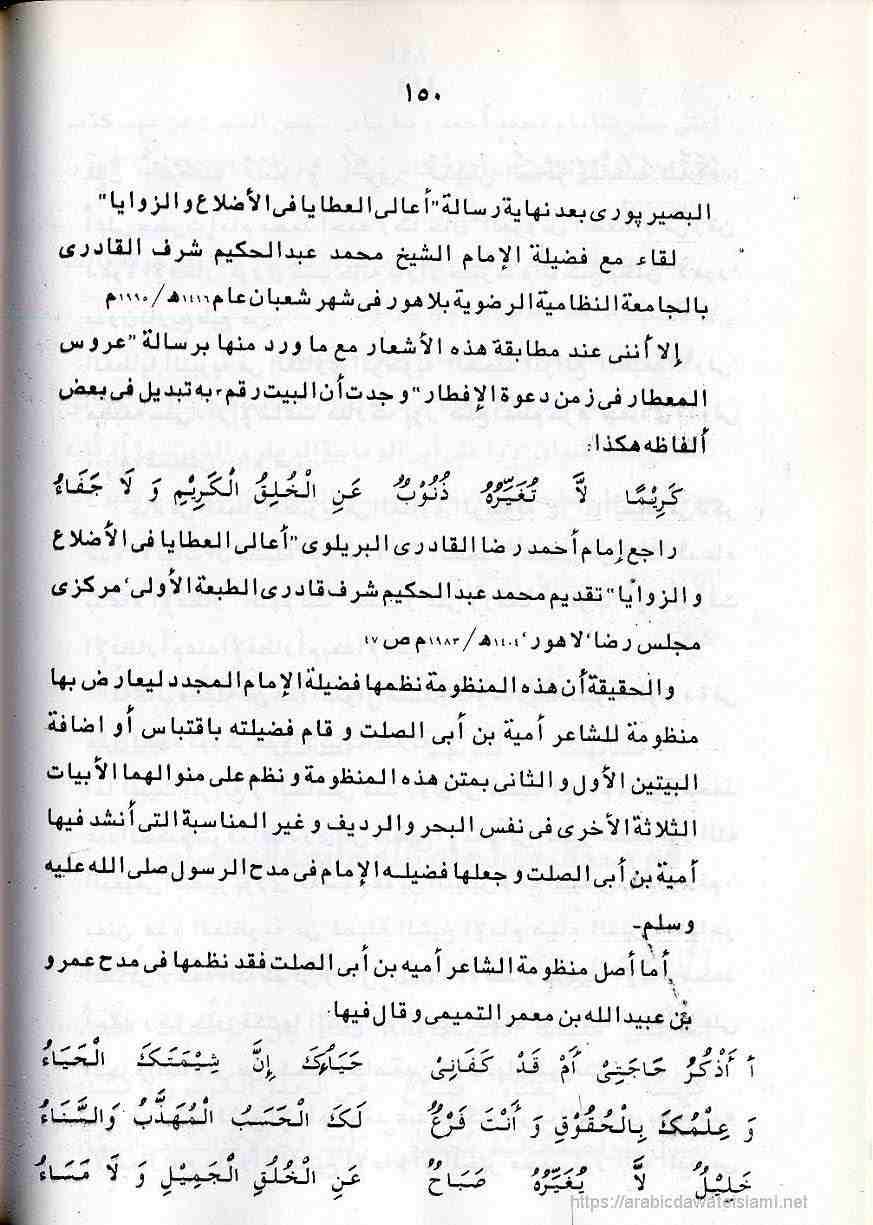 ١٥٠
البصير پوری بعد نهاية رسالة "أعالی العطايا فی الأضلاع و الزوايا"
لقاء مع فضيلة الإمام الشيخ محمد عبدالحكيم شرف القادری
بالجامعة النظامية الرضوية بلاهور فی شهر شعبان عام ١٤١٦ھ/١٩٩٥م
إلا أننی عند مطابقة هذه الأشعار مع ما ورد منها برسالة "عروس
المعطار فی زمن دعوة الإفطار" وجدت أن البيت رقم ٣ به تبديل فی بعض
ألفاظه هكذا:
كَرِيْمًا لاَّ تُغَيِّرُهُ ذُنُوْبٌ عَنِ الْخُلِقِ الْكَرِيْمِ وَ لَا جَفَاءُ
راجع إمام أحمد رضا القادری البريلوی "أعالی العطايا فی الأضلاع
و الزوايا" تقديم محمد عبدالحكيم شرف قادری الطبعة الأولی، مركزی
مجلس رضا، لاهور، ١٤٠٤ھ/١٩٨٣م ص ٤٧
والحقيقة أن هذه المنظومة نظمها فضيلة الإمام المجدد ليعارض بها
منظومة للشاعر أمية بن أبی الصلت و قام فضيلته باقتباس أو اضافة
البيتين الأول و الثانی بمتن هذه المنظومة و نظم علی منوالهما الأبيات
الثلاثة الأخری فی نفس البحر و الرديف و غير المناسبة التی أنشد فيها
أمية بن أبی الصلت و جعلها فضيله الإمام فی مدح الرسول صلی الله عليه
وسلم-
أما أصل منظومة الشاعر أميه بن أبی الصلت فقد نظمها فی مدح عمرو
بن عبيد الله بن معمر التميمی و قال فيها:
أ أَذْكُرُ حَاجَتِیْ أَمْ قَدْ كَفَانِیْ حَيَاءُكَ إِنَّ شِيْمَتَكَ الْحَيَاءُ
وَ عِلْمُكَ بِالْحُقُوْقِ وَ أَنْتَ فَرْعٌ لَكَ الْحَسَبُ الْمُهَذَّبُ وَالسَّنَاءُ
خَلِيْلٌ لاَّ يُغَيِّرُهُ صَبَاحٌ عَنِ الْخُلُقِ الْجَمِيْلِ وَ لَا مَسَاءُ
https://arabicdawateislami.net